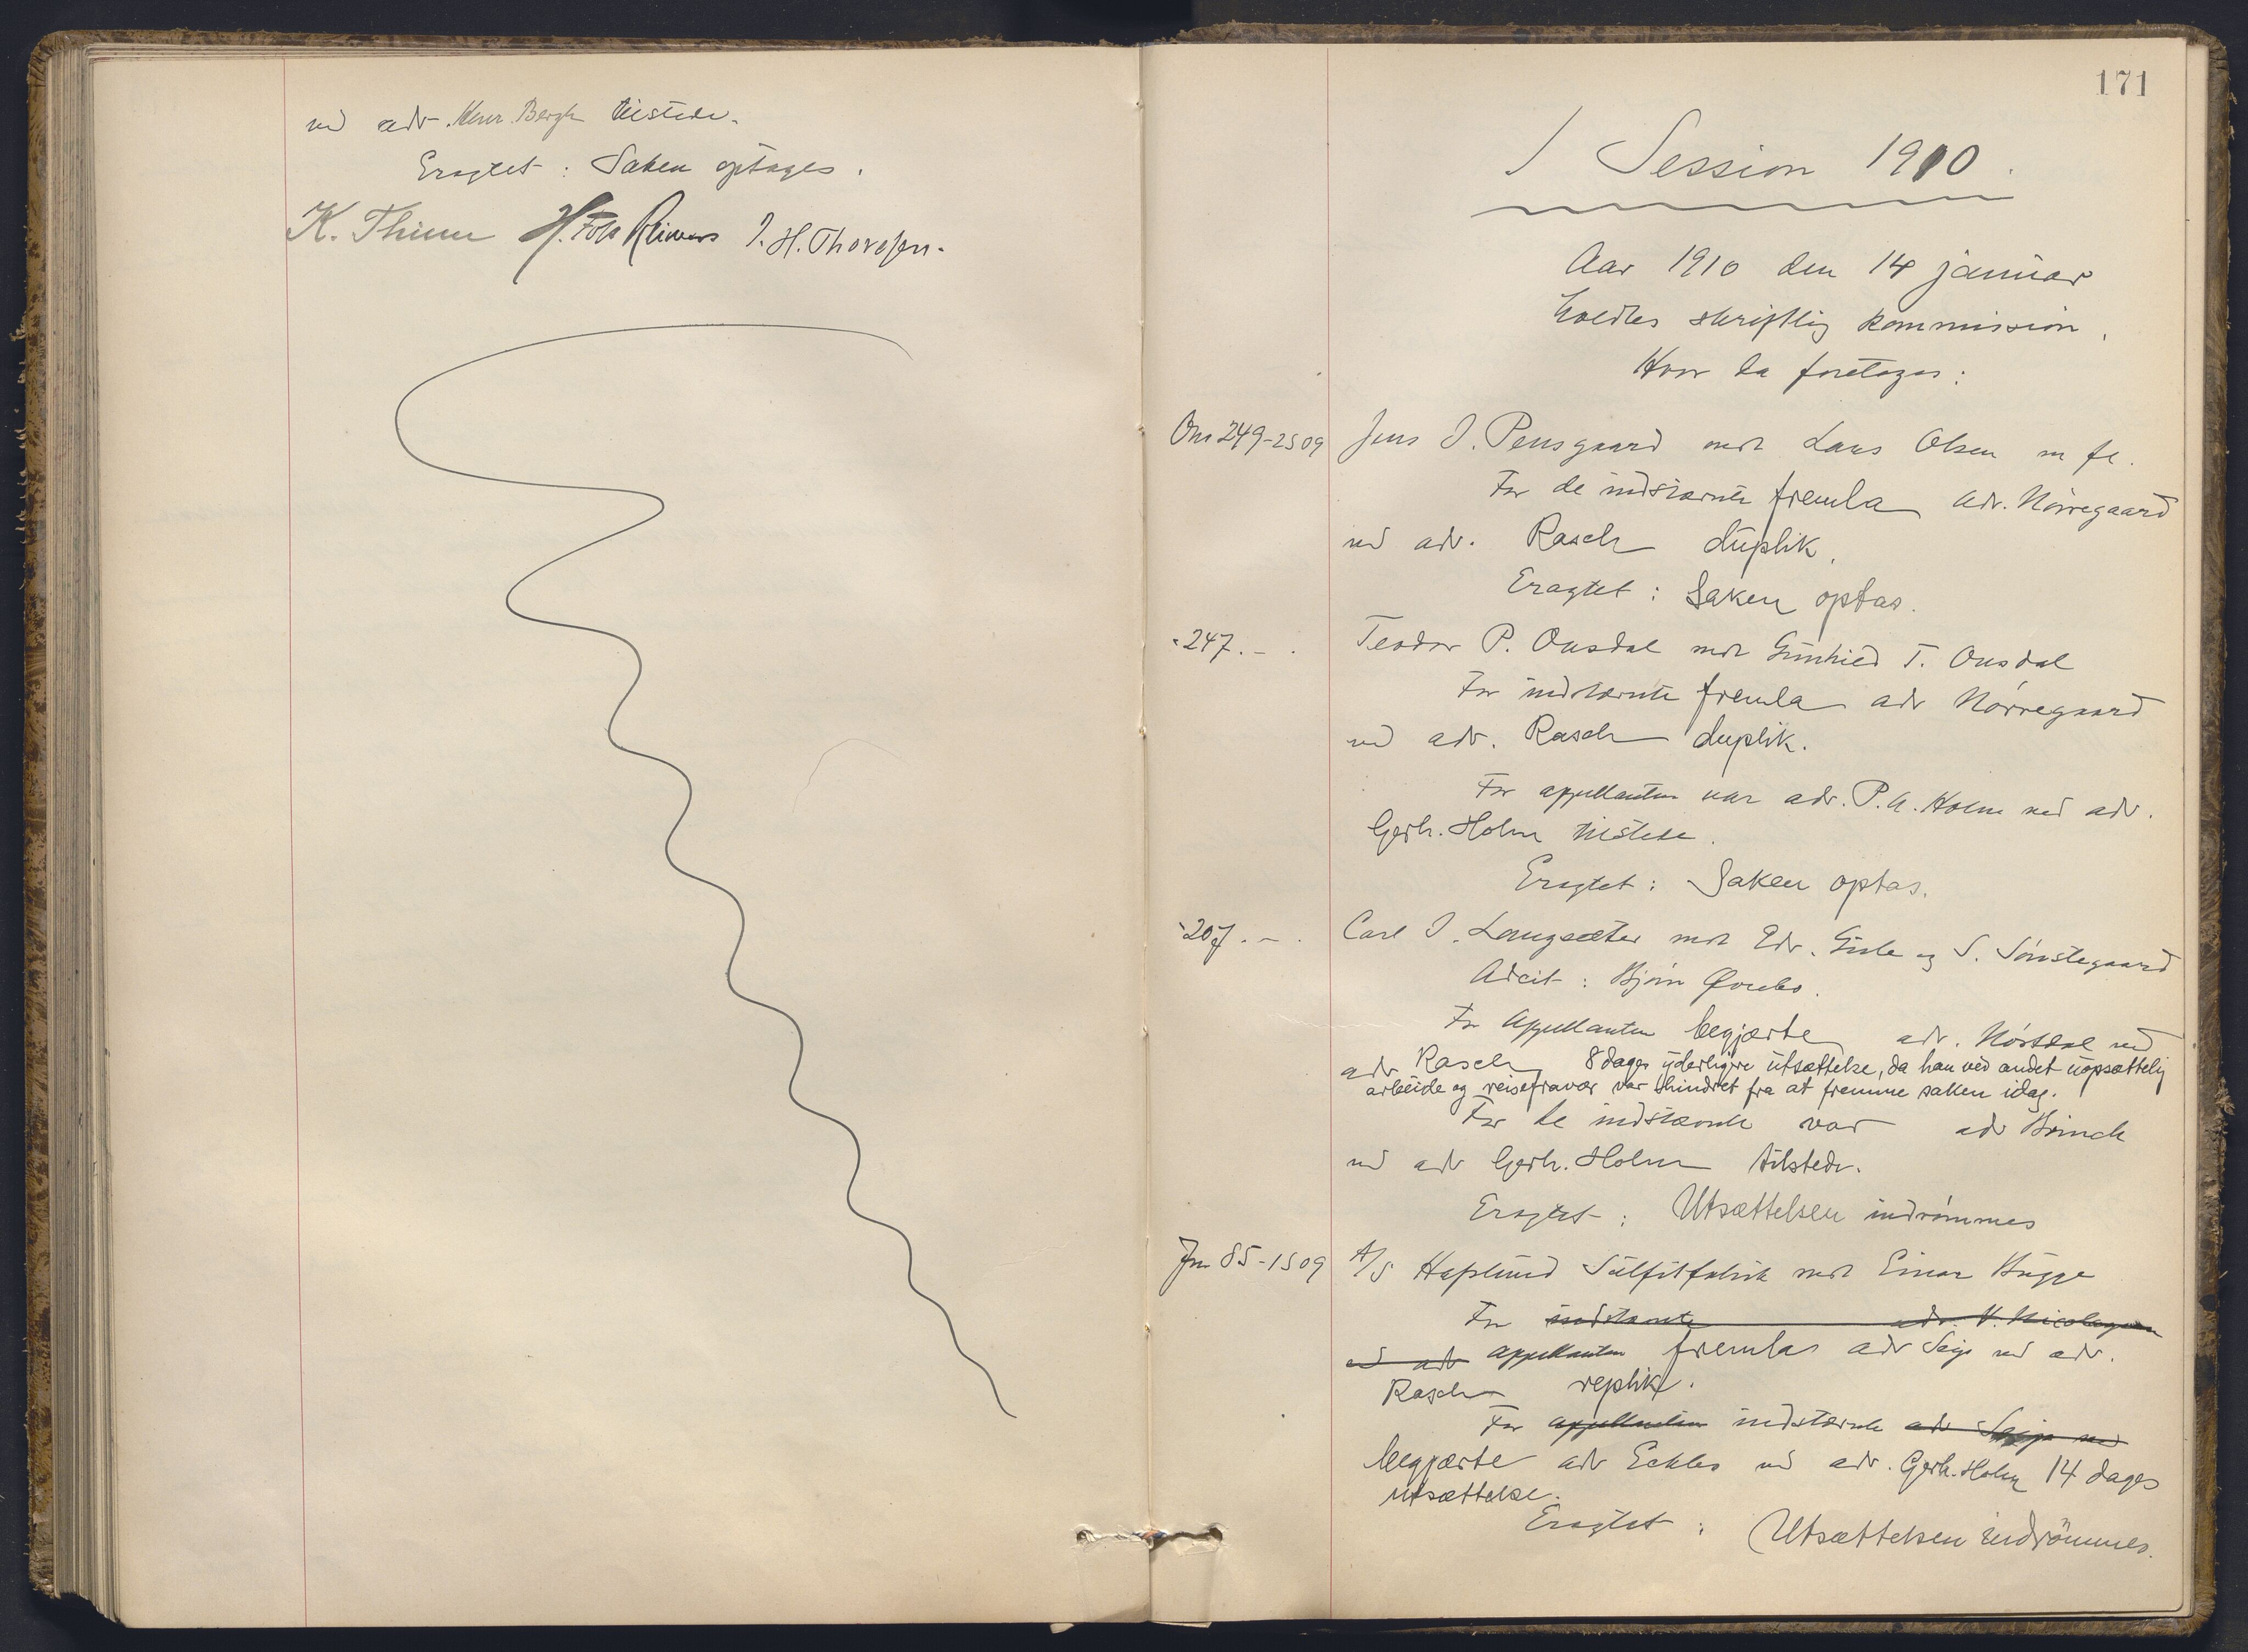 ved adv. Herr. Bergh tilstede.
Eragtet: Saken optages.
K. Thinn H. Foss Reimers J. H. Thoresen.
171
I Session 1910.
Aar 1910 den 14 januar
holdtes skriftlig kommission,
Hvor da foretoges:
Om 249-2S09 Jens J. Pensgaard mot Lars Olsen m fl.
For de indstævnte fremla adv. Nörregaard
ved adv. Rasch duplik.
Eragtet: Saken optas.
" 247. - . Teodor P. Onsdal mot Gunhild T. Onsdal
For indstævnte fremla adv Nörregaard
ved adv. Rasch duplik.
For appellanten var adv. P. A. Holm ved adv.
Gerh. Holm tilstede.
Eragtet: Saken optas.
" 207. - . Carl J. Langsæter mot Edv. og S. Sönstegaard
Adcit: Björn
For Appellanten begjærte adv. ved
adv Rasch 8 dages yderligere utsættelse, da han ved andet uopsættelig
arbeide og reisefravær var hindret fra at fremme saken idag.
For de indstævnte var adv Brinch
ved adv Gerh. Holm tilstede.
Eragtet: Utsættelsen indrömmes
Jm 85-1S09 A/S Hafslund Sulfitfabrik mot Einar Bugge
For indstævnte adv. V. Nicolaysen
ved adv appellanten fremlas adv ved adv.
Rasch replik.
For appellanten indstævnte adv ved
begjærte adv Eckbo ved adv. Gerh. Holm 14 dages
utsættelse.
Eragtet: Utsættelsen indrömmes.